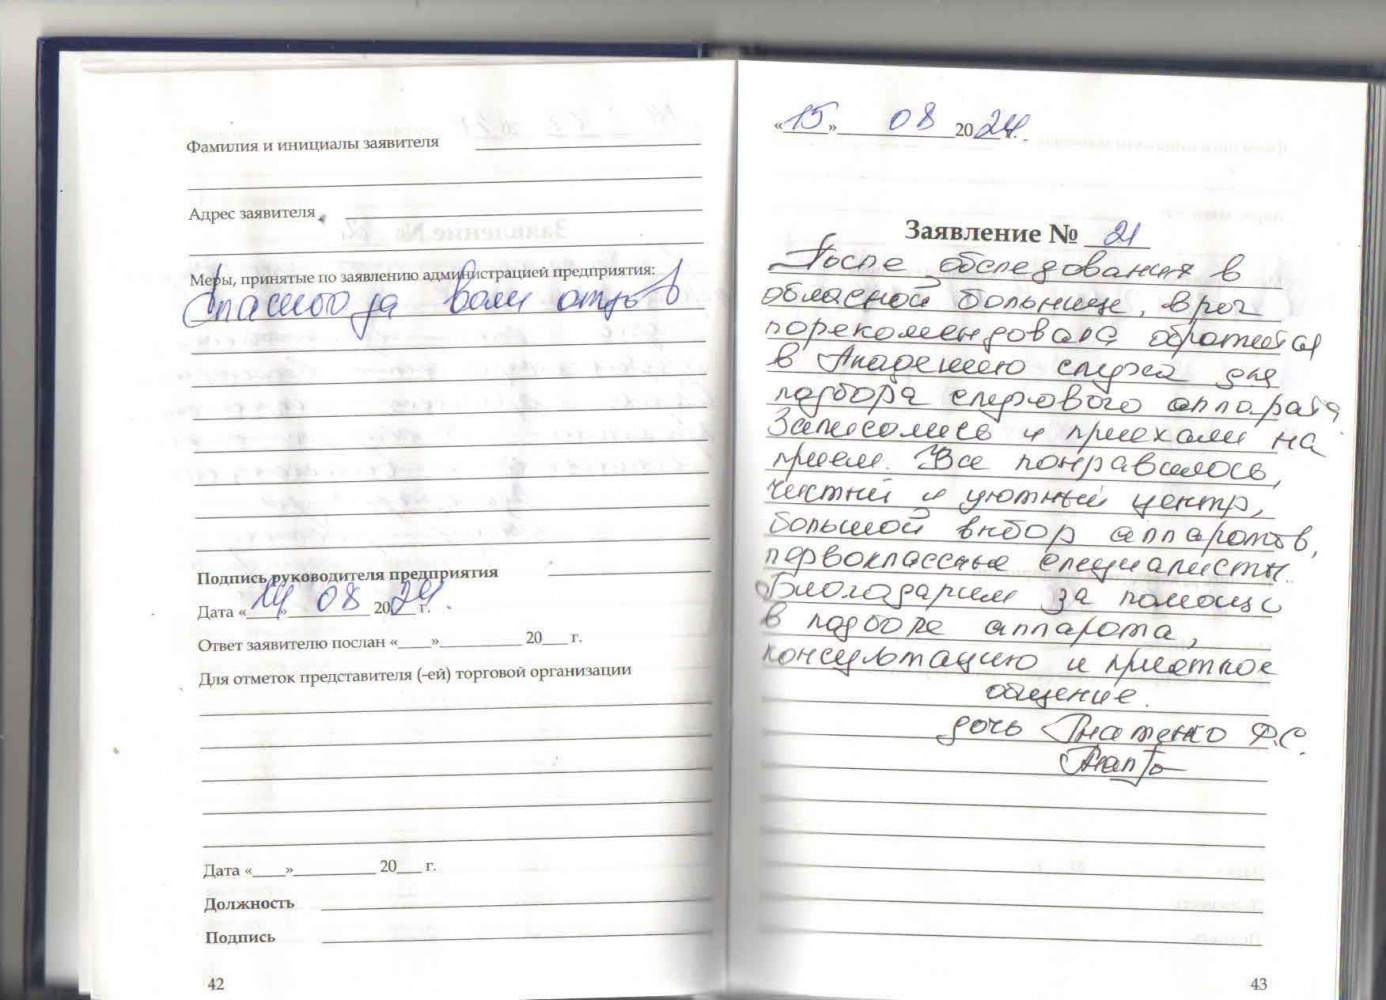 Фамилия и инициалы заявителя
Адрес заявителя
Меры, принятые по заявлению администрацией предприятия:
Спасибо за ваш отзыв
Подпись руководителя предприятия
Дата «14» 08 2024 г.
Ответ заявителю послан «____»__________ 20___ г.
Для отметок представителя (-ей) торговой организации
Дата «____»__________ 20___ г.
Должность
Подпись
42
«15» 08 2024 г.
Заявление № 21
После обследования в
обласной больнице, врач
порекомендовала обратится
в Академию слуха для
подбора слухового аппарата
Записались и приехали на
прием. Все понравилось,
чистый и уютный центр,
большой выбор аппаратов,
первоклассные специалисты.
Благодарим за помощь
в подборе аппарата,
консультацию и приятное
общение.
дочь Гнатенко Ф.С.
43